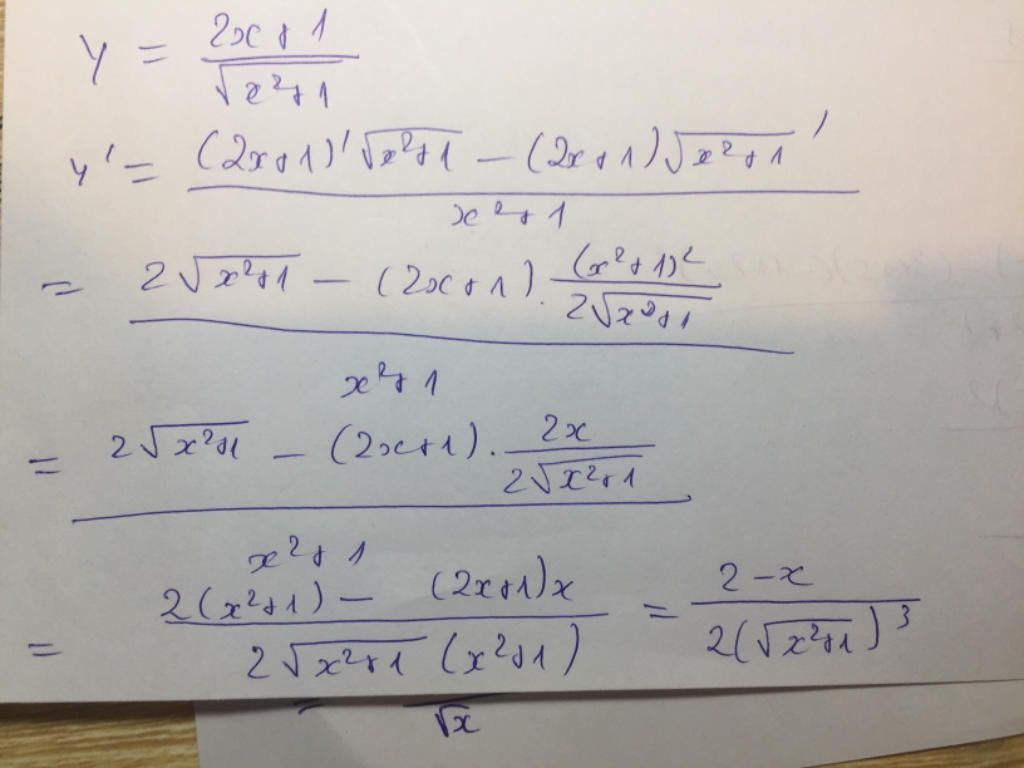 y = (2x+1)/√(x²+1)
y' = ((2x+1)'√(x²+1) − (2x+1)√(x²+1)')/(x²+1)
= (2√(x²+1) − (2x+1).(x²+1)'/(2√(x²+1)))/(x²+1)
= (2√(x²+1) − (2x+1).2x/(2√(x²+1)))/(x²+1)
= (2(x²+1) − (2x+1)x)/(2√(x²+1)(x²+1)) = (2−x)/(2(√(x²+1))³)
= √x